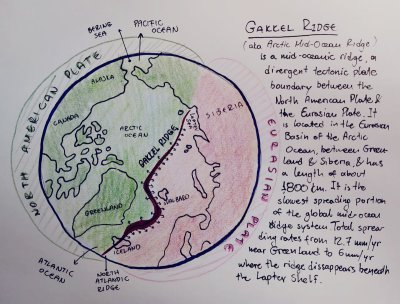 BERING
SEA
PACIFIC
OCEAN
ALASKA
CANADA
ARCTIC
OCEAN
GAKKEL RIDGE
SIBERIA
NORTH AMERICAN PLATE
EURASIAN PLATE
GREENLAND
SVALBARD
ICELAND
ATLANTIC
OCEAN
NORTH
ATLANTIC
RIDGE
GAKKEL RIDGE
(aka Arctic Mid-Ocean Ridge)
is a mid-oceanic ridge, a
divergent tectonic plate
boundary between the
North American Plate &
the Eurasian Plate. It
is located in the Eurasian
Basin of the Arctic
Ocean, between Green-
land & Siberia, & has
a length of about
1800 km. It is the
slowest spreading portion
of the global mid-ocean
ridge system. Total sprea
ding rates from 12.7 mm/yr
near Greenland to 6 mm/yr
where the ridge dissappears beneath
the Laptev Shelf.